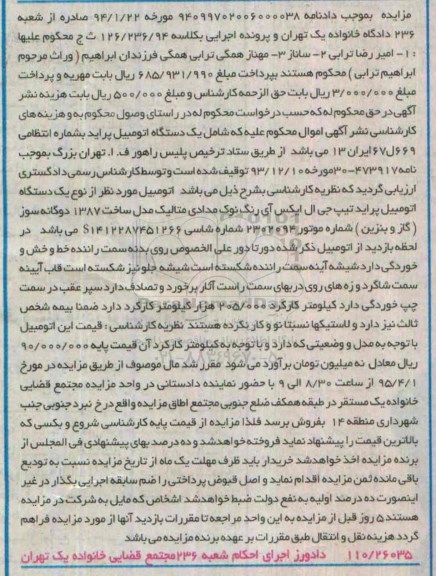 مزایده بموجب دادنامه ۹۴۰۹۹۷۰۲۰۰۶۰۰۰۰۳۸ مورخه ۹۴/۱/۲۲ صادره از شعبه
۲۳۶ دادگاه خانواده یک تهران و پرونده اجرایی بکلاسه ۱۲۶/۲۳۶/۹۴ ث ج محکوم علیها
: ۱- امیر رضا ترابی ۲- ساناز ۳- مهناز همگی ترابی همگی فرزندان ابراهیم ( وراث مرحوم
ابراهیم ترابی ) محکوم هستند بپرداخت مبلغ ۶۸۵/۹۳۱/۹۹۰ ریال بابت مهریه و پرداخت
مبلغ ۳/۰۰۰/۰۰۰ ریال بابت حق الزحمه کارشناس و مبلغ ۵۰۰/۰۰۰ ریال بابت هزینه نشر
آگهی در حق محکوم له که حسب درخواست محکوم له در راستای وصول محکوم به و هزینه های
کارشناسی نشر آگهی اموال محکوم علیه که شامل یک دستگاه اتومبیل پراید بشماره انتظامی
۶۶۹ل۶۷ایران ۱۳ می باشد از طریق ستاد ترخیص پلیس راهور ف.ا. تهران بزرگ بموجب
نامه ۴۷۳۹۱۷-۳۰مورخه ۹۳/۱۲/۱۰ توقیف شده است و توسط کارشناس رسمی دادگستری
ارزیابی گردید که نظریه کارشناسی بشرح ذیل می باشد اتومبیل مورد نظر از نوع یک دستگاه
اتومبیل پراید تیپ جی ال ایکس آی رنگ نوک مدادی متالیک مدل ساخت ۱۳۸۷ دوگانه سوز
( گاز و بنزین ) شماره موتور ۲۳۰۲۰۹۴ شماره شاسی S۱۴۱۲۲۸۷۴۵۱۲۶۶ می باشد در
لحظه بازدید از اتومبیل ذکر شده دور تا دور علی الخصوص روی بدنه سمت راننده خط و خش و
خوردگی دارد شیشه آینه سمت راننده شکسته است شیشه جلو نیز شکسته است قاب آیینه
سمت شاگرد و زه های روی درهای سمت راست آثار برخورد و تصادف دارد سپر عقب در سمت
چپ خوردگی دارد کیلومتر کارکرد ۲۰۵/۰۰۰ هزار کیلومتر کارکرد دارد ضمنا بیمه شخص
ثالث نیز دارد و لاستیکها نسبتا نو و کار نکرده هستند نظریه کارشناسی : قیمت این اتومبیل
با توجه به مدل و وضعیتی که دارد و با توجه به کیلومتر کارکرد آن قیمت پایه ۹۰/۰۰۰/۰۰۰
ریال معادل نه میلیون تومان برآورد می شود مقرر شد مال موصوف از طریق مزایده در مورخ
۹۵/۴/۱ از ساعت ۸/۳۰ الی ۹ با حضور نماینده دادستانی در واحد مزایده مجتمع قضایی
خانواده یک مستقر در طبقه همکف ضلع جنوبی مجتمع اطاق مزایده واقع در خ نبرد جنوبی جنب
شهرداری منطقه ۱۴ بفروش برسد فلذا مزایده از قیمت پایه کارشناسی شروع و بکسی که
بالاترین قیمت را پیشنهاد نماید فروخته خواهد شد و ده درصد بهای پیشنهادی فی المجلس از
برنده مزایده اخذ خواهد شد خریدار باید ظرف مهلت یک ماه از تاریخ مزایده نسبت به تودیع
باقی مانده ثمن مزایده اقدام نماید و اصل قبوض پرداختی را ضم سابقه اجرایی بگذار در غیر
اینصورت ده درصد اولیه به نفع دولت ضبط خواهد شد اشخاص که مایل به شرکت در مزایده
هستند ۵ روز قبل از مزایده به این واحد مراجعه تا مقررات بازدید آنها از مورد مزایده فراهم
گردد هزینه نقل و انتقال طبق مقررات بر عهده برنده مزایده می باشد
۱۱۰/۲۶۰۳۵ دادورز اجرای احکام شعبه ۲۳۶مجتمع قضایی خانواده یک تهران